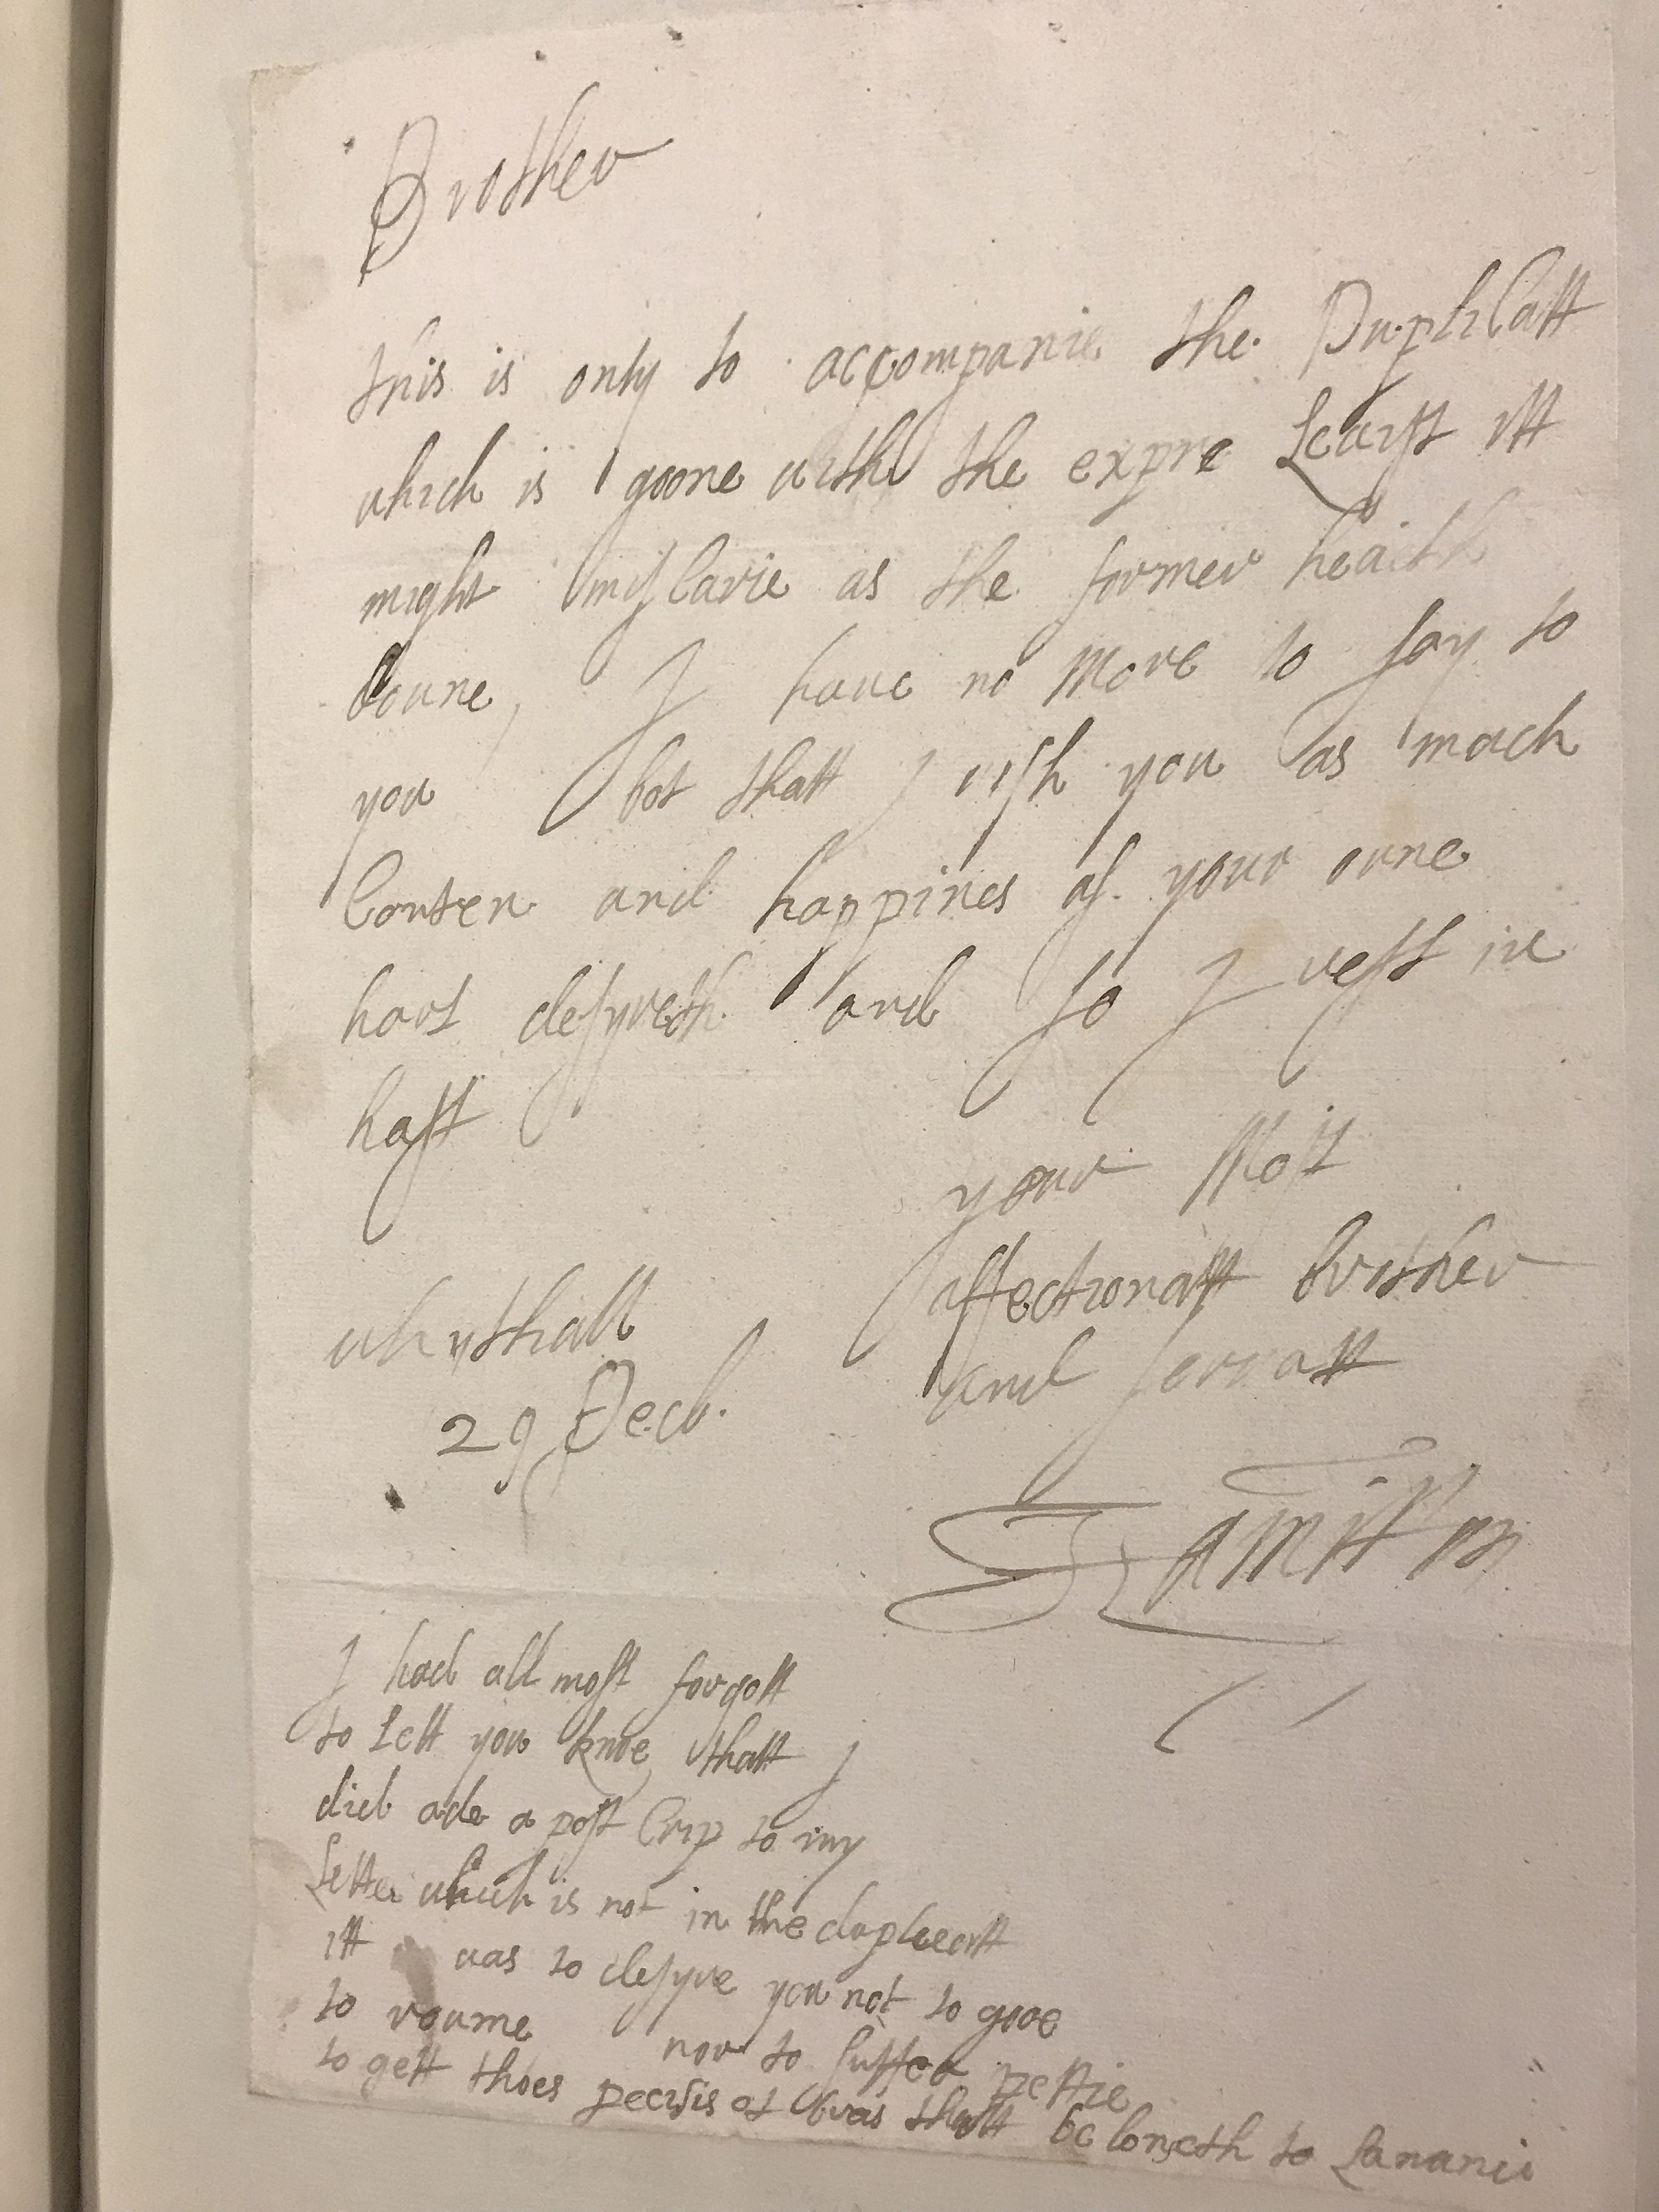 Brother
this is only to accompanie the Duplicatt
which is goone with the expre Leaist itt
might myscarie as the former heaith
doune, I haue no More to say to
you bot thatt I wish you as much
Conten and happines as your oune
hart desyreth and so I rest in
hast
your Most
affectionatt brother
and servatt
whythall
29 Decb.
Hamilton
I had all most forgott
to lett you knoe thatt I
did ade a post Crip to my
Letter which is not in the duplicatt
itt was to desyre you not to gooe
to roume nor to suffer pettie
to gett thoes pecisis of bras thatt belongeth to